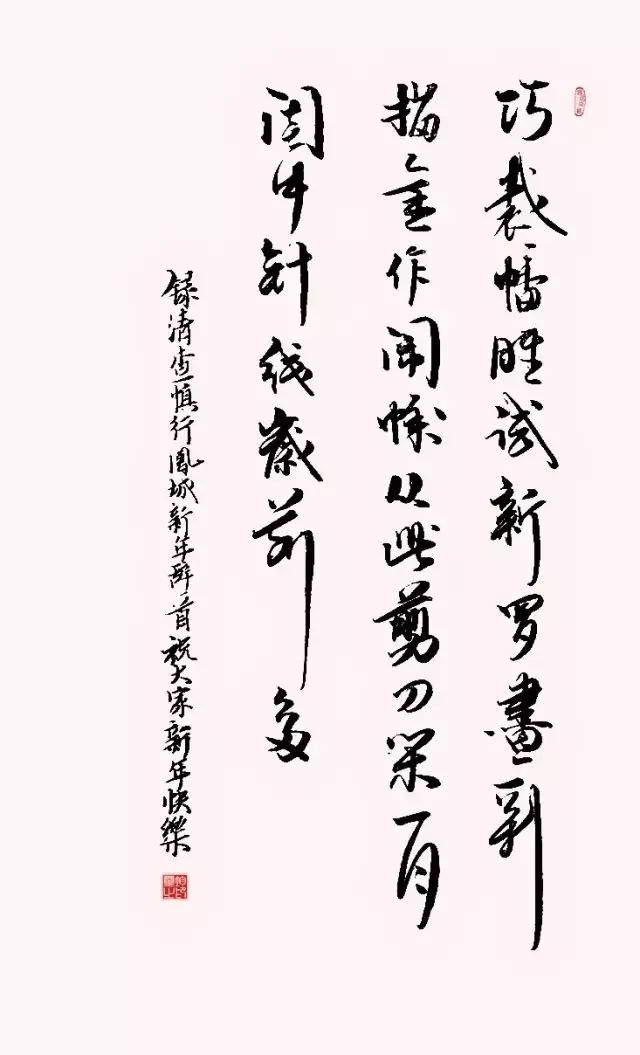 巧裁幡胜试新罗畫彩
描金作闹蛾从此剪刀闲一月
闺中针线歲前多
録清查慎行鳳城新年辞一首祝大家新年快樂